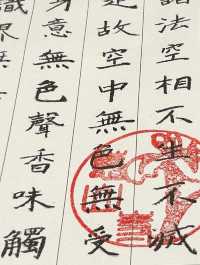 諸法空相不生不滅
是故空中無色無受
身意無色聲香味觸
識界無